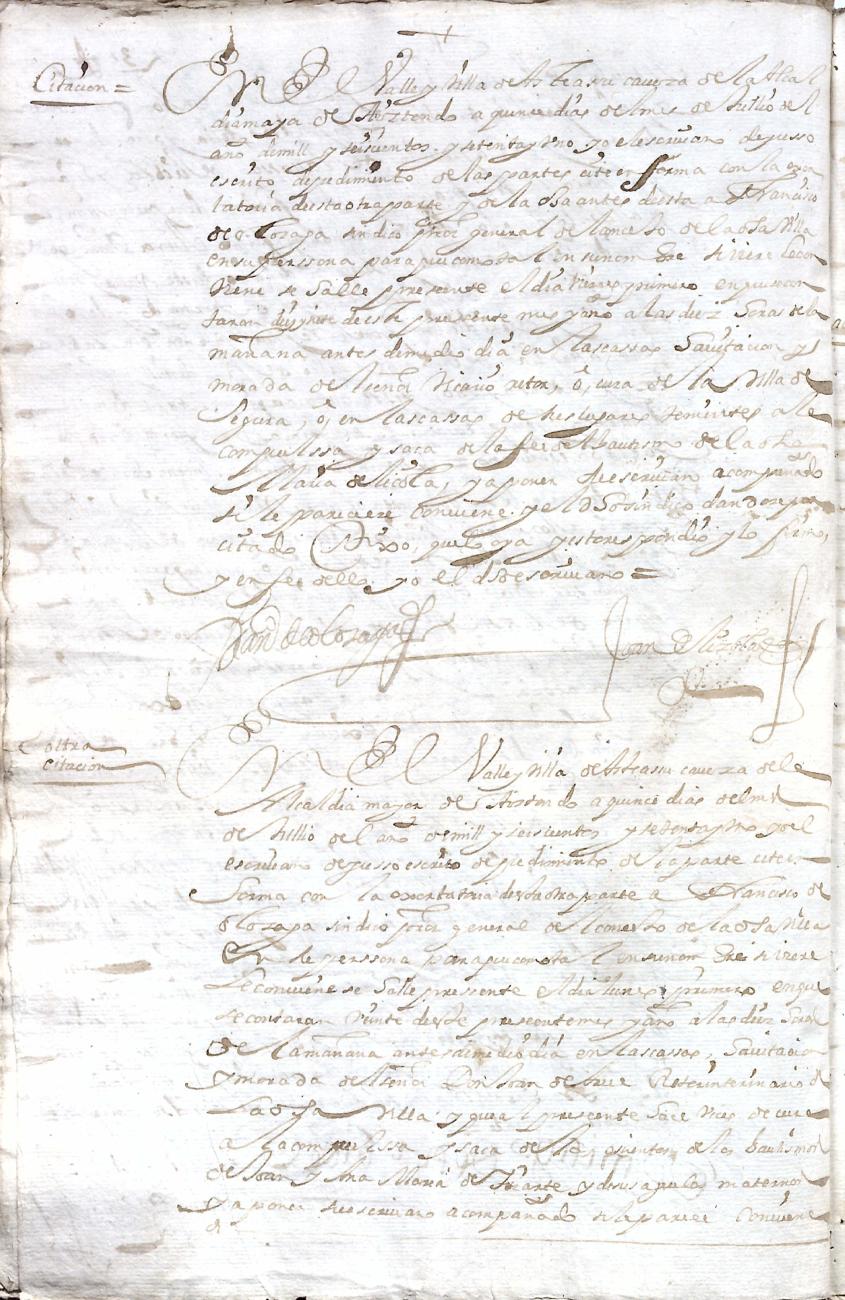 Citacion =
En El Valle y Villa de Atassu caveza de la Alcal
dia maya de Aiztondo a quince dias del mes de Jullio del
año de mill y seiscientos y setenta y uno yo el escrivano de yusso
escrito de pedimiento de las partes cite en forma con la exor
tatoria desta otra parte y de la oja antes desta a Francisco
de olozaga sindico procr general del concejo de la dha Villa
en su perssona para que como tal en su nombre si viere le con
viene se halle pressente el dia viernes primero en que se con
taran diez y siete deeste pressente mes y año a las diez horas de la
mañana antes de medio dia en las cassas havitacion y
morada del señor Vicario retor, o, cura de la Villa de
Segura, o, en las cassas de sus lugares tenientes a la
compulssa y saca de la fee del bautismo de la dha
Maria de licola, y a poner escrivano acompañado
si le pareciere conviene y el dho sindico dandose por
citado Dixo, que lo oya y esto respondio y lo firmo,
y en fee dello yo el dho escrivano =
Franco de olozaga
Juan D
otra
citacion
En El Valle y Villa de Atassu caveza de la
Alcaldia mayor de Aiztondo a quince dias del mes
de Jullio del año de mill y seiscientos y setenta y uno yo el
escrivano de yusso escrito de pedimiento de la parte cite en
forma con la exortatoria desta otra parte a Francisco de
olozaga sindico procr general del concejo de la dha Villa
En su perssona para que como tal en su nombre si viere
le conviene se halle pressente el dia lunes primero en que
se contaran veinte deste pressente mes y año a las diez horas
de la mañana antes de medio dia en las cassas, havitacion
y morada del señor Don Joan de Retor interinario de
la dha Villa y que al pressente hace vices de cura
a la compulssa y saca de los asientos de los bautismos
de Joan y Ana Maria de Iriarte y de sus aguelos maternos
y a poner escrivano acompañado si la parece Conviene